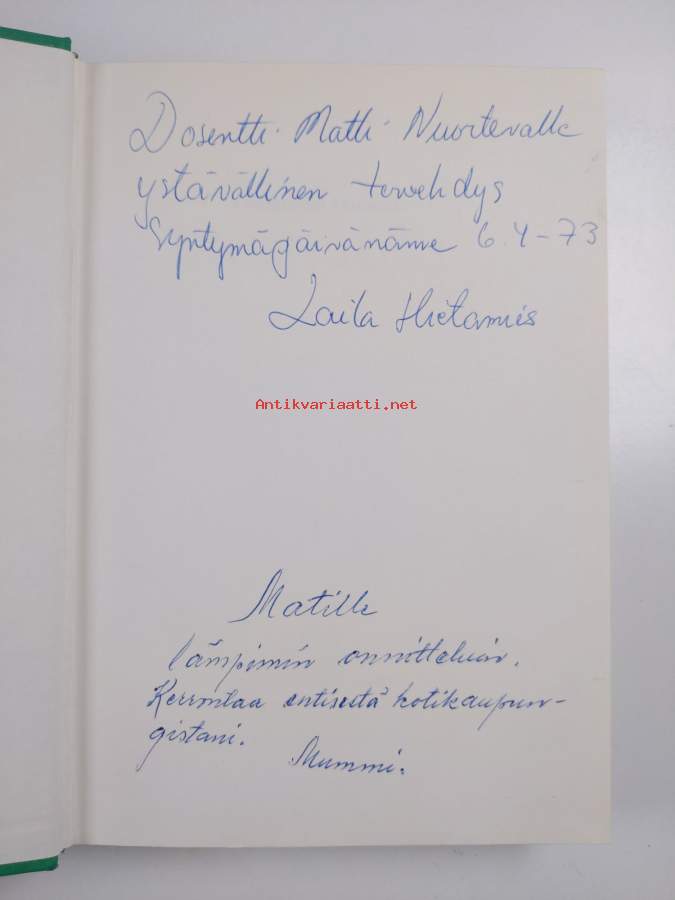 Dosentti Matti Nuortevalle
ystävällinen tervehdys
syntymäpäivänänne 6.4-73
Laila Hietamies
Antikvariaatti.net
Matille
lämpimin onnitteluin.
Kerrontaa entisestä kotikaupun-
gistani.
Mummi.